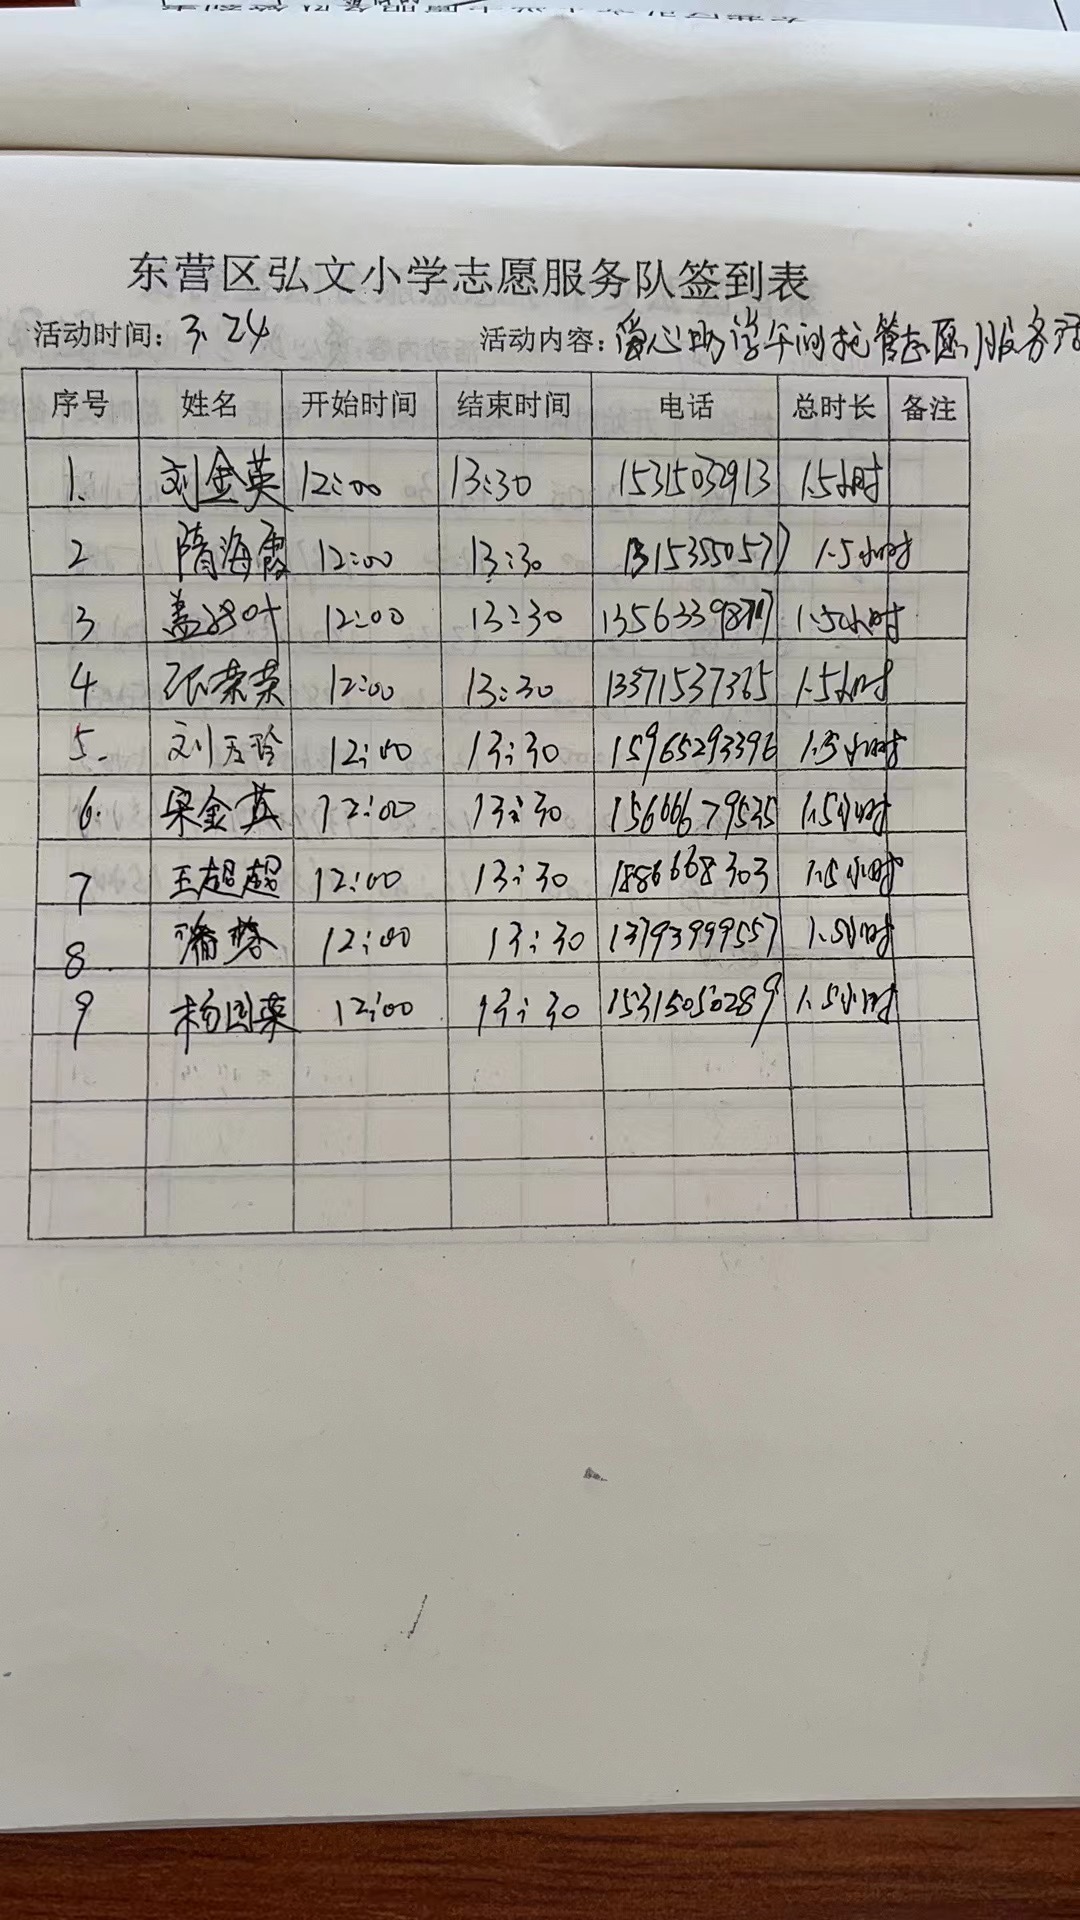 东营区弘文小学志愿服务队签到表
活动时间：3.24 活动内容：爱心助学午间托管志愿服务活
序号 姓名 开始时间 结束时间 电话 总时长 备注
1. 刘金英 12:00 13:30 15315032913 1.5小时
2 隋海霞 12:00 13:30 1.5小时
3 12:00 13:30 1.5小时
4 张荣英 12:00 13:30 13371537365 1.5小时
5. 刘玉玲 12:00 13:30 15965293396 1.5小时
6. 梁金英 12:00 13:30 15666679535 1.5小时
7 王超超 12:00 13:30 1886668303 1.5小时
8 12:00 13:30 13793999557 1.5小时
9 杨国英 12:00 13:30 15315050289 1.5小时